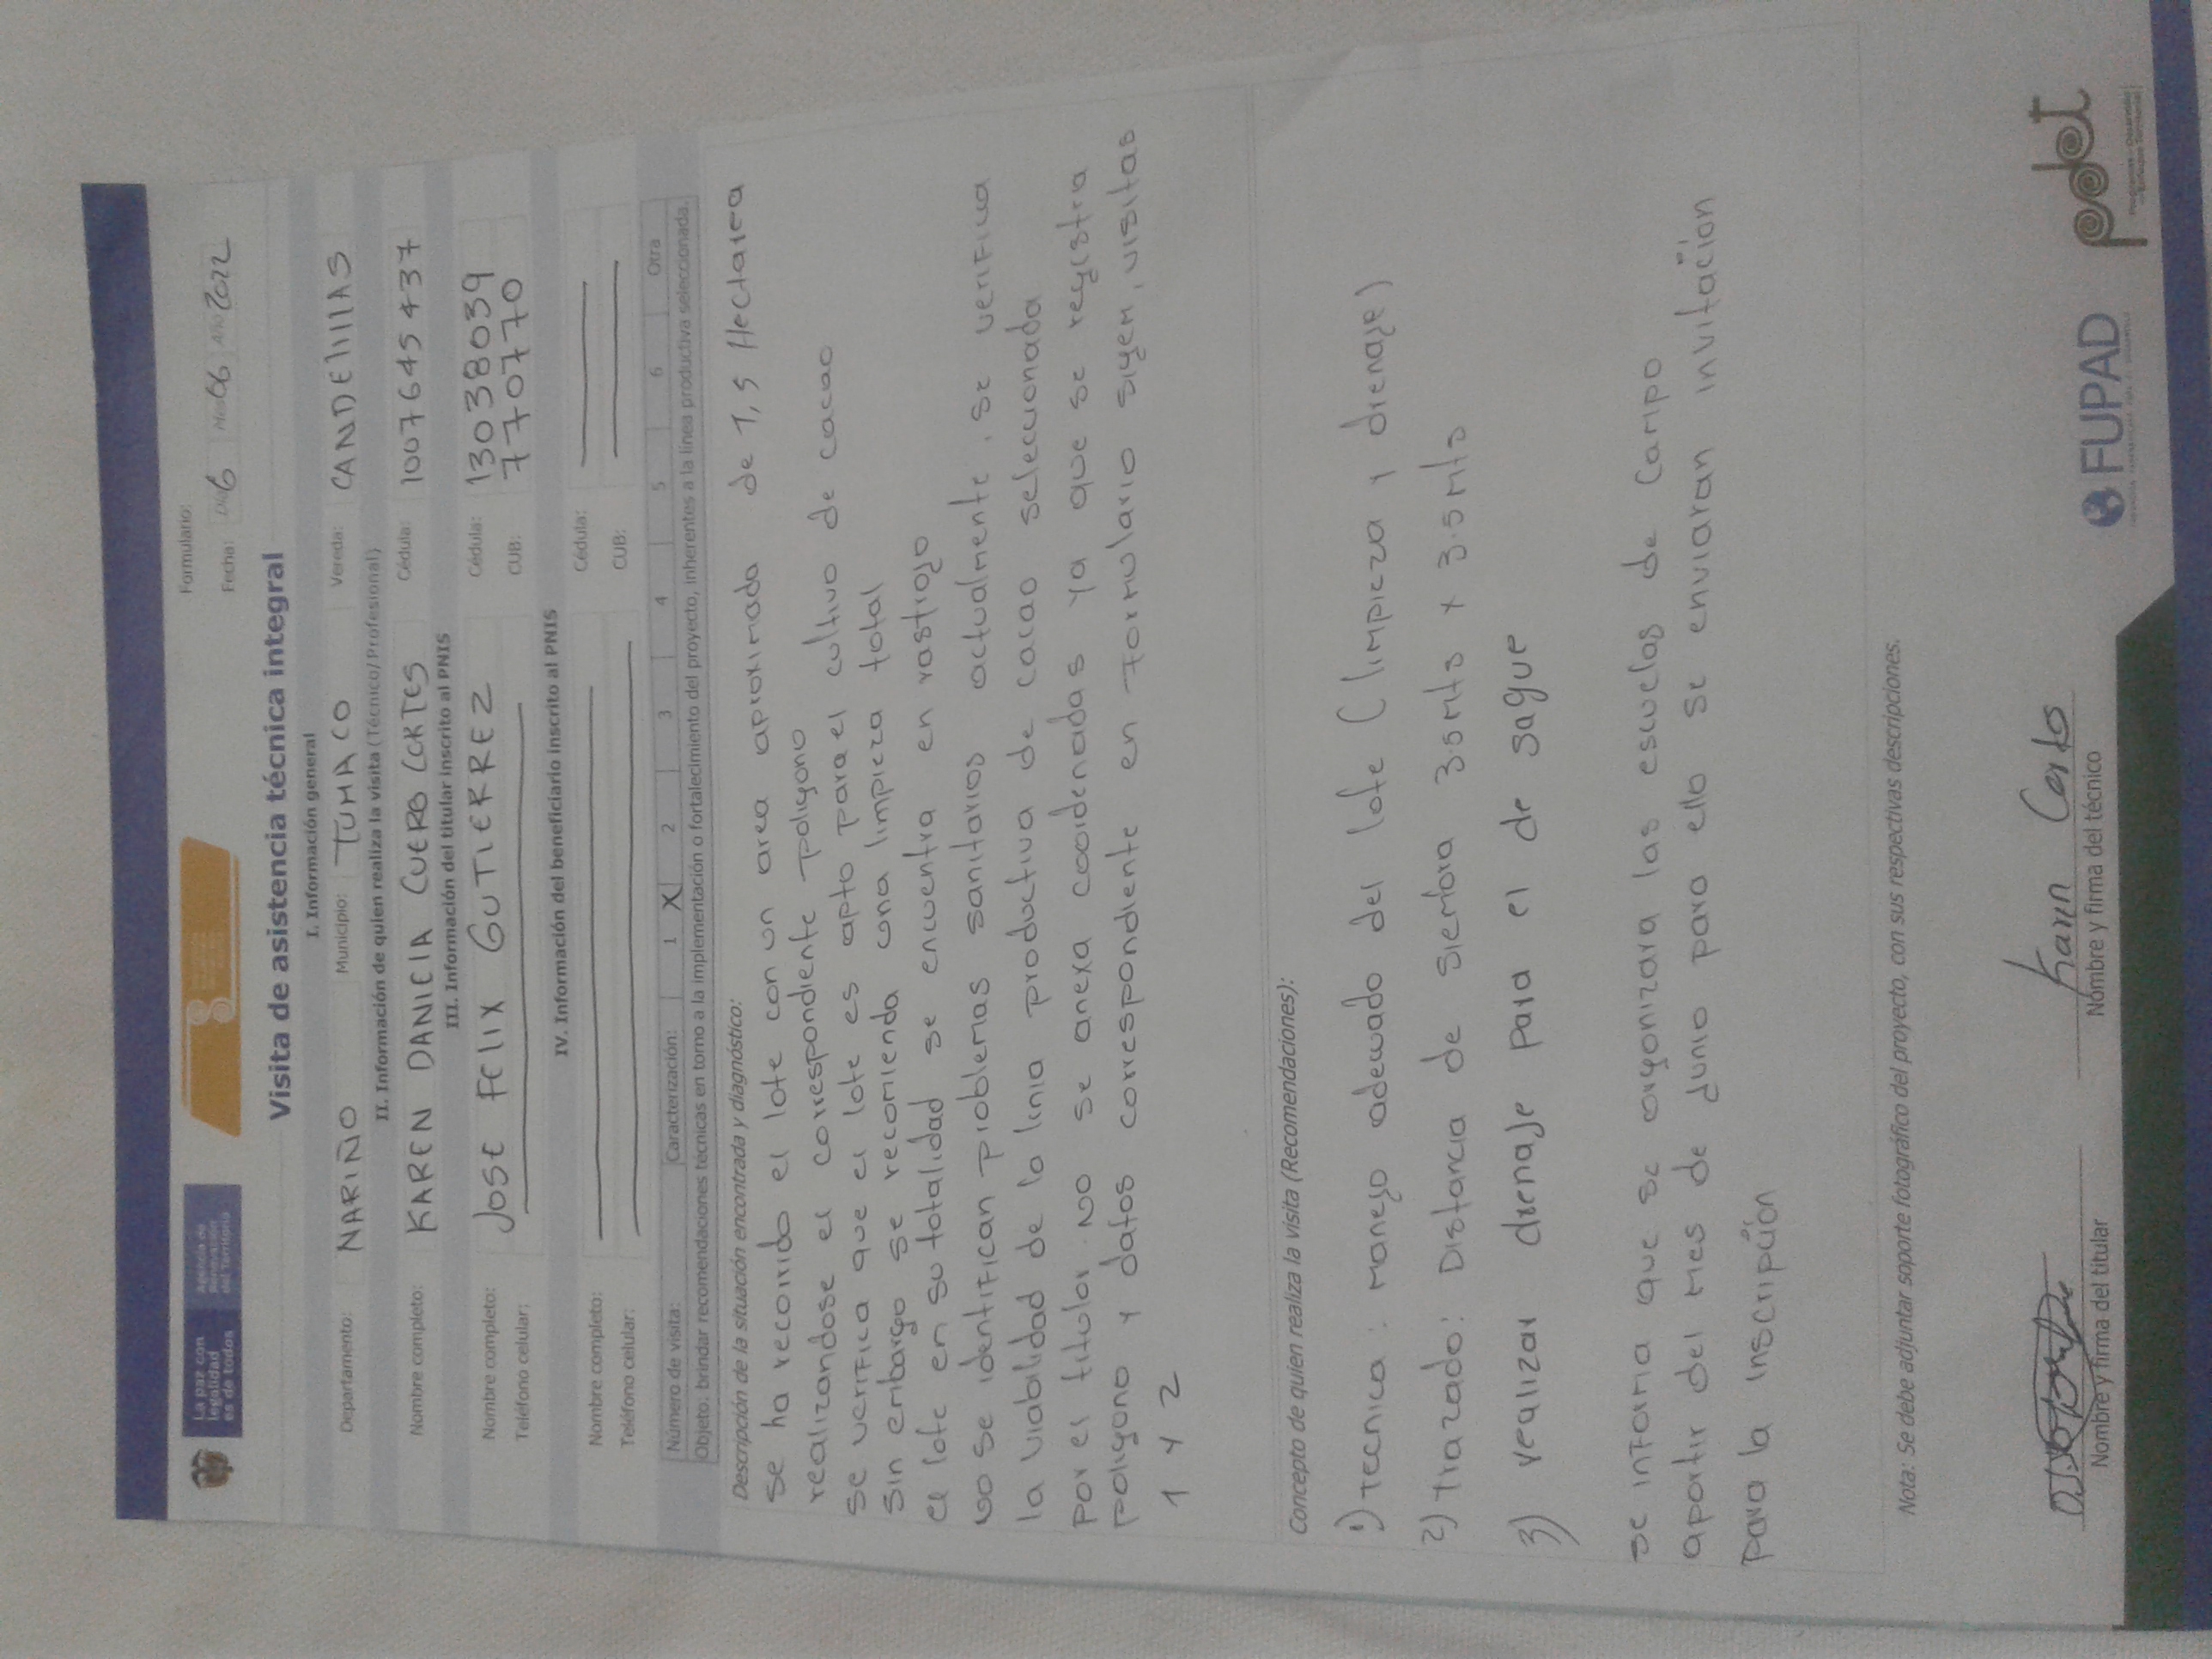 La paz con
legalidad
es de todos
Agencia de
Renovación
del Territorio
Formulario:
Fecha: Día 6 Mes 06 Año 2022
Visita de asistencia técnica integral
I. Información general
Departamento: NARIÑO Municipio: TUMACO Vereda: CANDElIllAS
II. Información de quien realiza la visita (Técnico/Profesional)
Nombre completo: KAREN DANIElA CUERO CORTES Cédula: 1007645437
III. Información del titular inscrito al PNIS
Nombre completo: JOSE FELIX GUTIERREZ Cédula: 13038039
Teléfono celular: CUB: 7770770
IV. Información del beneficiario inscrito al PNIS
Nombre completo: Cédula:
Teléfono celular: CUB:
Número de visita: Caracterización: 1 X 2 3 4 5 6 Otra
Objeto: brindar recomendaciones técnicas en torno a la implementación o fortalecimiento del proyecto, inherentes a la línea productiva seleccionada.
Descripción de la situación encontrada y diagnóstico:
se ha recorrido el lote con un area aproximada de 1,5 Hectarea
realizandose el correspondiente poligono
se verifica que el lote es apto para el cultivo de cacao
sin embargo se recomienda una limpieza total
el lote en su totalidad se encuentra en rastrojo
no se identifican problemas sanitarios actualmente, se verifica
la viabilidad de la linia productiva de cacao seleccionada
por el titular. No se anexa coordenadas ya que se registra
poligono y datos correspondiente en formulario siyem, visitas
1 y 2
Concepto de quien realiza la visita (Recomendaciones):
1) tecnica: manejo adecuado del lote (limpieza y drenaje)
2) trazado: Distancia de siembra 3.5 mts x 3.5 mts
3) realizar drenaje para el de sague
se informa que se organizara las escuelas de campo
apartir del mes de Junio para ello se enviaran invitación
para la inscripción
Nota: Se debe adjuntar soporte fotográfico del proyecto, con sus respectivas descripciones.
Karen Cortes
Nombre y firma del titular Nombre y firma del técnico
FUPAD
pdet